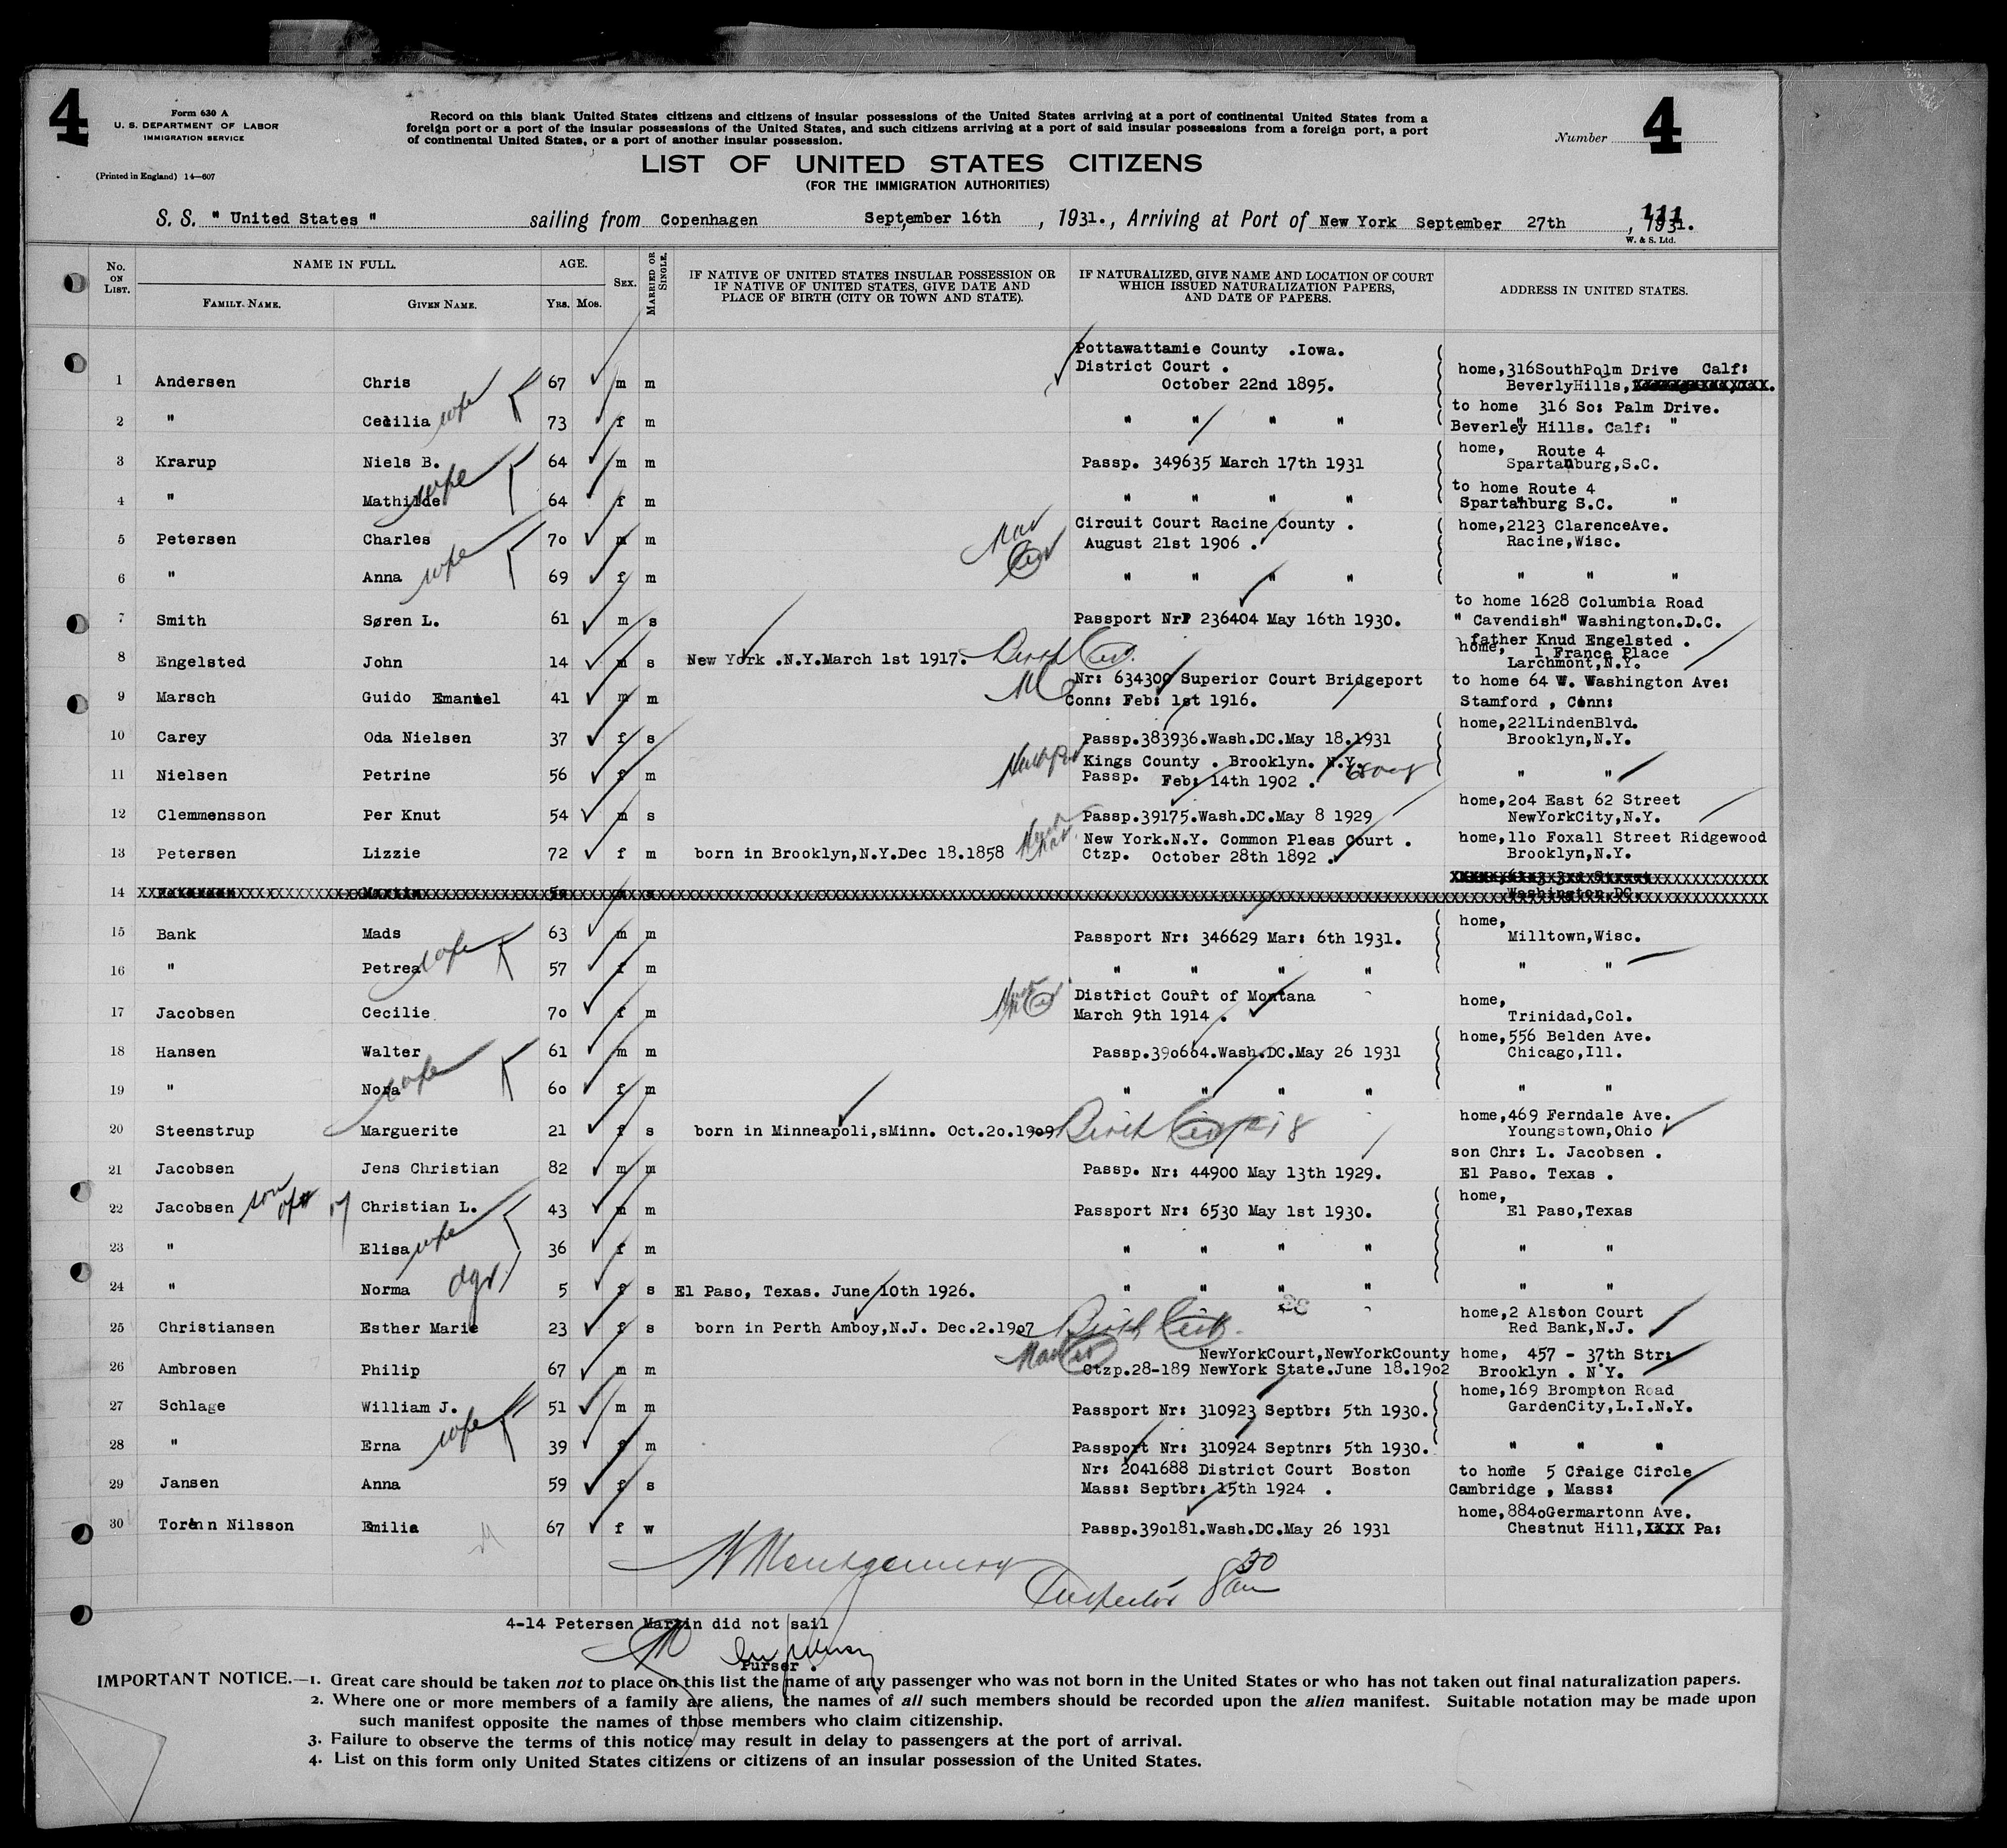 4
Form 630 A
U. S. DEPARTMENT OF LABOR
IMMIGRATION SERVICE
(Printed in England) 14—607
Record on this blank United States citizens and citizens of insular possessions of the United States arriving at a port of continental United States from a
foreign port or a port of the insular possessions of the United States, and such citizens arriving at a port of said insular possessions from a foreign port, a port
of continental United States, or a port of another insular possession.
Number 4
LIST OF UNITED STATES CITIZENS
(FOR THE IMMIGRATION AUTHORITIES)
S. S. " United States " sailing from Copenhagen September 16th , 1931. , Arriving at Port of New York September 27th , 1931.
111
W. & S. Ltd.
No. ON LIST. NAME IN FULL. AGE. SEX. MARRIED OR SINGLE. IF NATIVE OF UNITED STATES INSULAR POSSESSION OR IF NATIVE OF UNITED STATES, GIVE DATE AND PLACE OF BIRTH (CITY OR TOWN AND STATE). IF NATURALIZED, GIVE NAME AND LOCATION OF COURT WHICH ISSUED NATURALIZATION PAPERS, AND DATE OF PAPERS. ADDRESS IN UNITED STATES.
FAMILY NAME. GIVEN NAME. YRS. MOS.
Pottawattamie County .Iowa.
District Court .
1 Andersen Chris 67 m m October 22nd 1895. home,316SouthPalm Drive Calf:
BeverlyHills,
2 " Cecilia wife 73 f m " " " " to home 316 So: Palm Drive.
Beverley Hills. Calf: "
3 Krarup Niels B. 64 m m Passp. 349635 March 17th 1931 home, Route 4
Spartanburg,S.C.
4 " Mathilde wife 64 f m " " " " to home Route 4
Spartanburg S.C. "
5 Petersen Charles 70 m m Circuit Court Racine County .
August 21st 1906 . home,2123 ClarenceAve.
Racine,Wisc.
6 " Anna wife 69 f m " " " " " " "
7 Smith Søren L. 61 m s Passport NrP 236404 May 16th 1930. to home 1628 Columbia Road
" Cavendish" Washington.D.C.
8 Engelsted John 14 m s New York .N.Y.March 1st 1917. Birth Cer. father Knud Engelsted .
home, 1 France Place
Larchmont,N.Y.
9 Marsch Guido Emanuel 41 m m Nr: 634300 Superior Court Bridgeport
Conn: Feb: 1st 1916. to home 64 W. Washington Ave:
Stamford , Conn:
10 Carey Oda Nielsen 37 f s Passp.383936.Wash.DC.May 18.1931 home,221LindenBlvd.
Brooklyn,N.Y.
11 Nielsen Petrine 56 f m Kings County . Brooklyn. N.Y.
Passp. Feb: 14th 1902 . " "
12 Clemmensson Per Knut 54 m s Passp.39175.Wash.DC.May 8 1929 home,204 East 62 Street
NewYorkCity,N.Y.
13 Petersen Lizzie 72 f m born in Brooklyn,N.Y.Dec 18.1858 New York.N.Y. Common Pleas Court .
Ctzp. October 28th 1892 . home,110 Foxall Street Ridgewood
Brooklyn,N.Y.
14 Petersen Martin
Washington,DC.
15 Bank Mads 63 m m Passport Nr: 346629 Mar: 6th 1931. home,
Milltown,Wisc.
16 " Petrea wife 57 f m " " " " " "
17 Jacobsen Cecilie 70 f m District Court of Montana
March 9th 1914 . home,
Trinidad,Col.
18 Hansen Walter 61 m m Passp.390664.Wash.DC.May 26 1931 home,556 Belden Ave.
Chicago,Ill.
19 " Nora wife 60 f m " " " " " "
20 Steenstrup Marguerite 21 f s born in Minneapoli,sMinn. Oct.20.1909 Birth Cer home,469 Ferndale Ave.
Youngstown,Ohio
21 Jacobsen Jens Christian 82 m m Passp. Nr: 44900 May 13th 1929. son Chr: L. Jacobsen .
El Paso. Texas .
22 Jacobsen son of Christian L. 43 m m Passport Nr: 6530 May 1st 1930. home,
El Paso,Texas
23 " Elisa wife 36 f m " " " " " "
24 " Norma dgr 5 f s El Paso, Texas. June 10th 1926. " " " " " "
25 Christiansen Esther Marie 23 f s born in Perth Amboy,N.J. Dec.2.1907 Birth Cert. home,2 Alston Court
Red Bank,N.J.
26 Ambrosen Philip 67 m m NewYorkCourt,NewYorkCounty
Ctzp.28-189 NewYork State.June 18.1902 home, 457 - 37th Str:
Brooklyn . N.Y.
27 Schlage William J. 51 m m Passport Nr: 310923 Septbr: 5th 1930. home,169 Brompton Road
GardenCity,L.I.N.Y.
28 " Erna wife 39 f m Passport Nr: 310924 Septnr: 5th 1930. " " "
29 Jansen Anna 59 f s Nr: 2041688 District Court Boston
Mass: Septbr: 15th 1924 . to home 5 Craige Circle
Cambridge , Mass:
30 Torenn Nilsson Emilie 67 f w Passp.390181.Wash.DC.May 26 1931 home,8840Germartonn Ave.
Chestnut Hill,XXXX Pa:
Montgomery
Inspector 8 30 am
4-14 Petersen Martin did not sail
Purser .
IMPORTANT NOTICE.—1. Great care should be taken not to place on this list the name of any passenger who was not born in the United States or who has not taken out final naturalization papers.
2. Where one or more members of a family are aliens, the names of all such members should be recorded upon the alien manifest. Suitable notation may be made upon
such manifest opposite the names of those members who claim citizenship.
3. Failure to observe the terms of this notice may result in delay to passengers at the port of arrival.
4. List on this form only United States citizens or citizens of an insular possession of the United States.